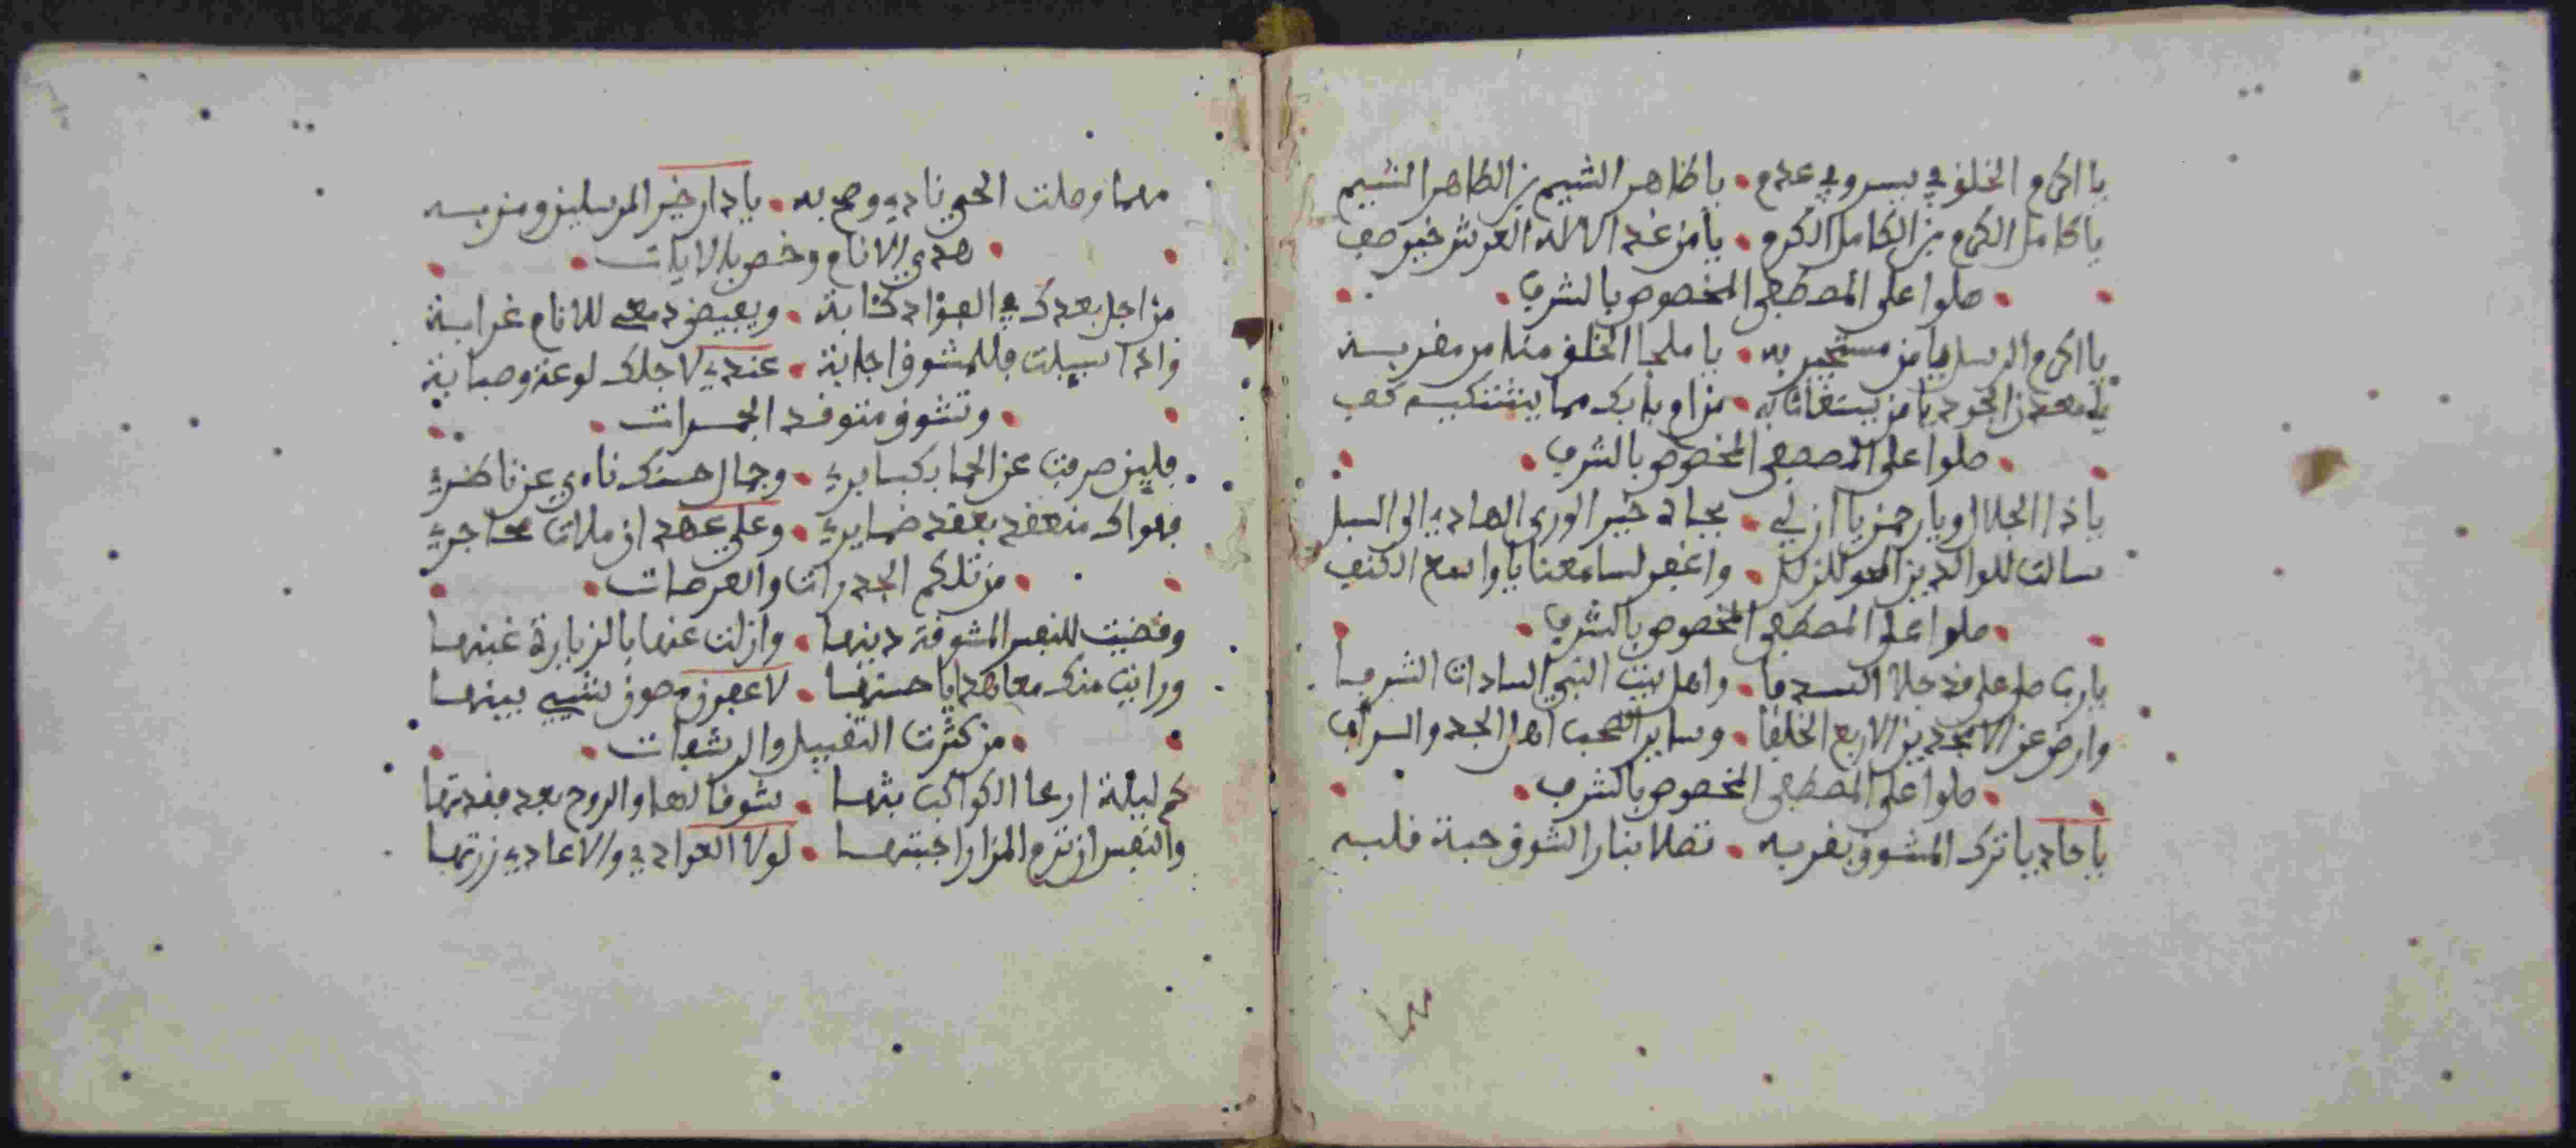 يا اكرم الخلق في يسر وفي عدم • يا طاهر الشيم بن الطاهر الشيم
يا كامل الكرم بن الكامل الكرم • يا من غدا لاله العرش خير صفي
• صلوا على المصطفى المخصوص بالشرف •
يا اكرم الرسل يا من مستجير به • يا ملجا الخلق منا من مغربه
يا معدن الجود يا من يستغاثا به • من او بابك مما يشتكيه كفي
• صلوا على المصطفى المخصوص بالشرف •
يا ذا الجلال ويا رحمن يا ازلي • بجاه خير الورى الهادي الى السبل
سالت للوالدين العفو للزلل • واغفر لسامعنا يا واسع الكنف
• صلوا على المصطفى المخصوص بالشرف •
يا رب صل على من قد جلا السدفا • واهل بيت النبي السادات الشرفا
وارض عن الامجدين الاربع الخلفا • وساير الصحب اهل المجد والسرف
• صلوا على المصطفى المخصوص بالشرف •
يا حاديا ترك المشوق بغربه • تصلا بنار الشوق حبة قلبه
مهما وصلت الحي ناديه وصح به • يا دار خير المرسلين ومن به
• هدي الانام وخص بالايات •
من اجل بعدك في الفؤاد كئابة • ويفيض دمعي للانام غرابة
واذا سيلت فللمشوق اجابة • عندي لاجلك لوعة وصبابة
• وتشوق متوقد الجمرات •
فلين صرفت عن الحما بكبايري • وجمال حسنك ناء عن ناظري
فهواك منعقد بعقد ضمايري • وعلي عهد ان ملات محاجري
• من تلكم الجدرات والعرصات •
وقضيت للنفس المشوقة دينها • وازلت عنها بالزيارة غينها
ورايت منك معاهدا يا حسنها • لاعفرن مصون شيبي بينها
• من كثرت التقبيل والرشفات •
كم ليلة ارعا الكواكب بتها • شوقا لها والروح بعد فقدتها
والنفس ان ترم المزار اجبتها • لولا العوادي والاعادي زرتها